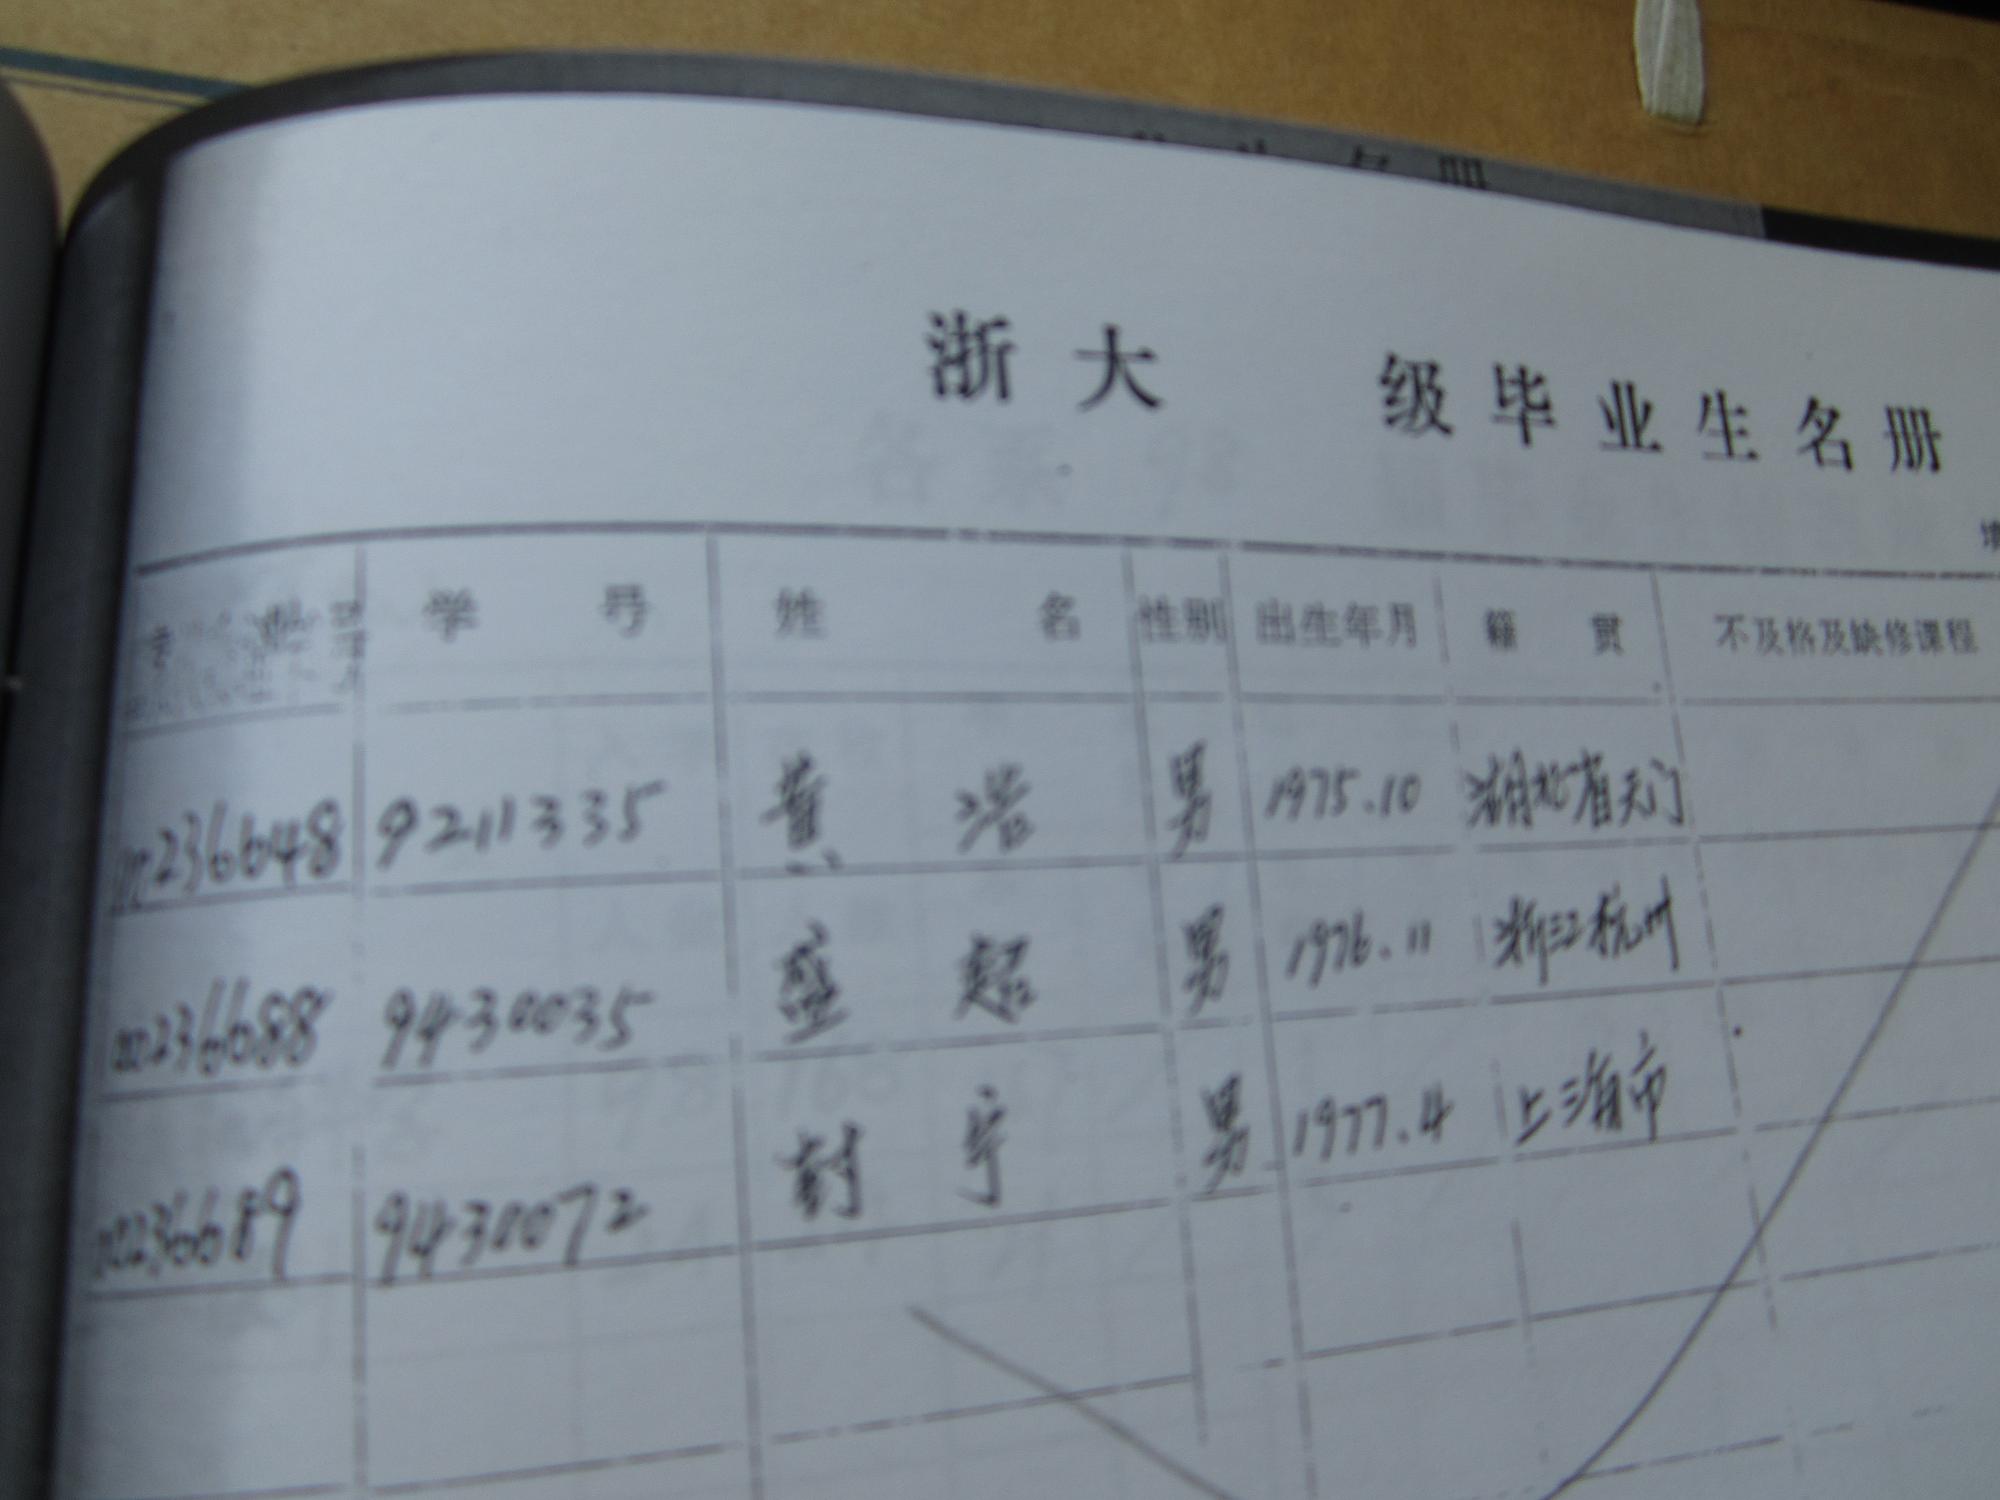 浙大 级毕业生名册
学号 姓名 性别 出生年月 籍贯 不及格及缺修课程
00236648 9211335 黄浩 男 1975.10 湖北省天门
00236688 9430035 盛超 男 1976.11 浙江杭州
00236689 9430072 封宇 男 1977.4 上海市